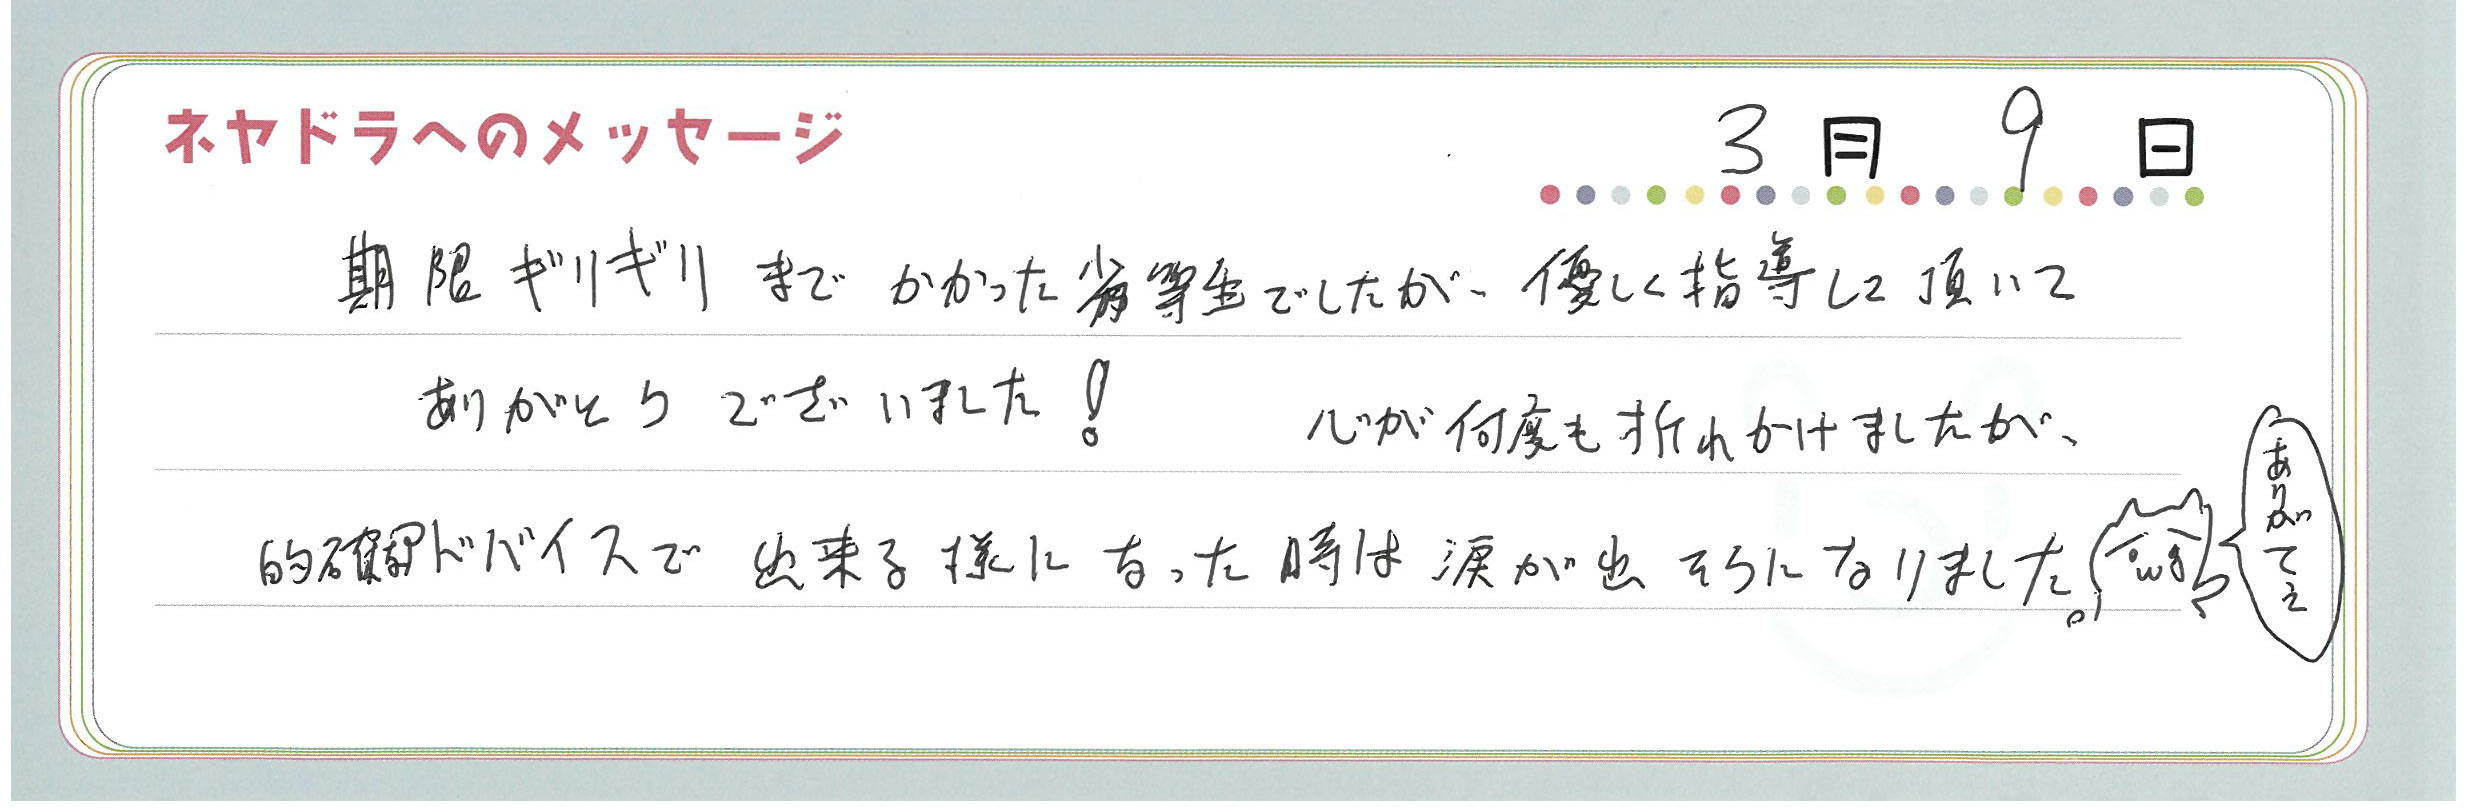 ネヤドラへのメッセージ
3月9日
期限ギリギリまでかかった劣等生でしたが、優しく指導して頂いて
ありがとうございました! 心が何度も折れかけましたが、
的確アドバイスで出来る様になった時は涙が出そうになりました。
ありがてえ